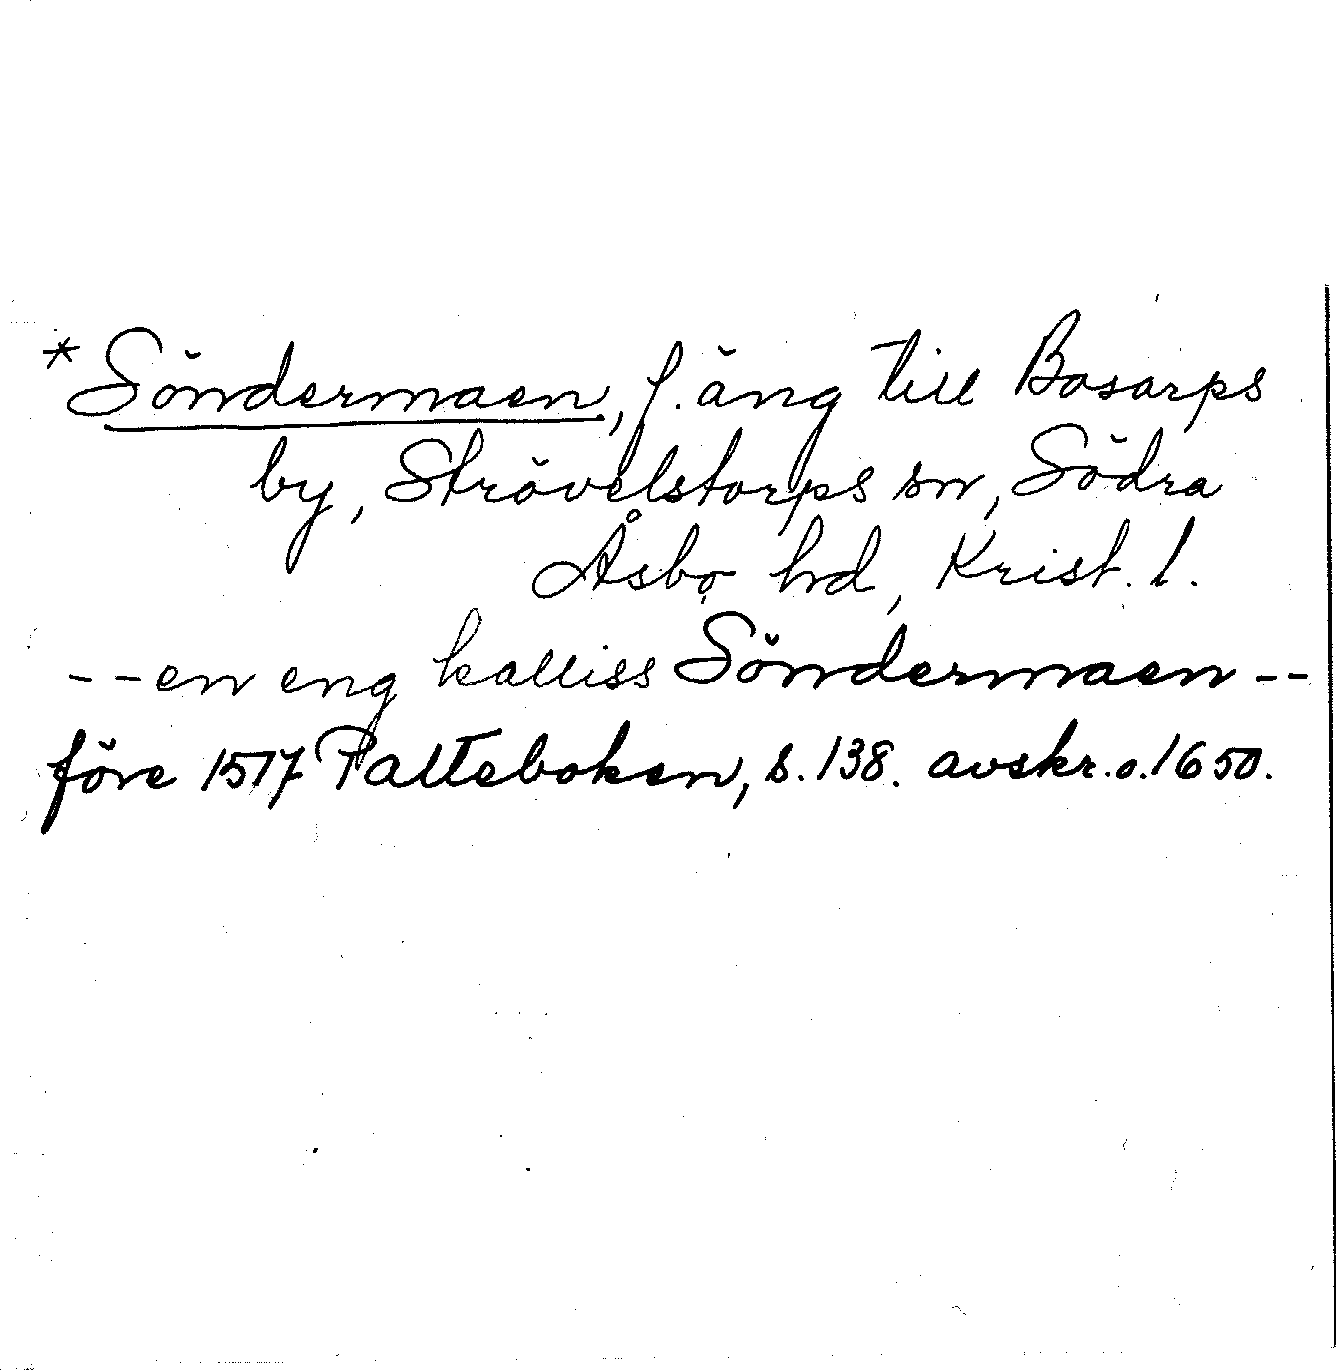 *Söndermaen, f. äng till Bosarps
by, Strövelstorps sn, Södra
Åsbo hd, Krist. l.
--en eng kalliss Söndermaen--
före 1517 Palteboken, s. 138. avskr. o. 1650.